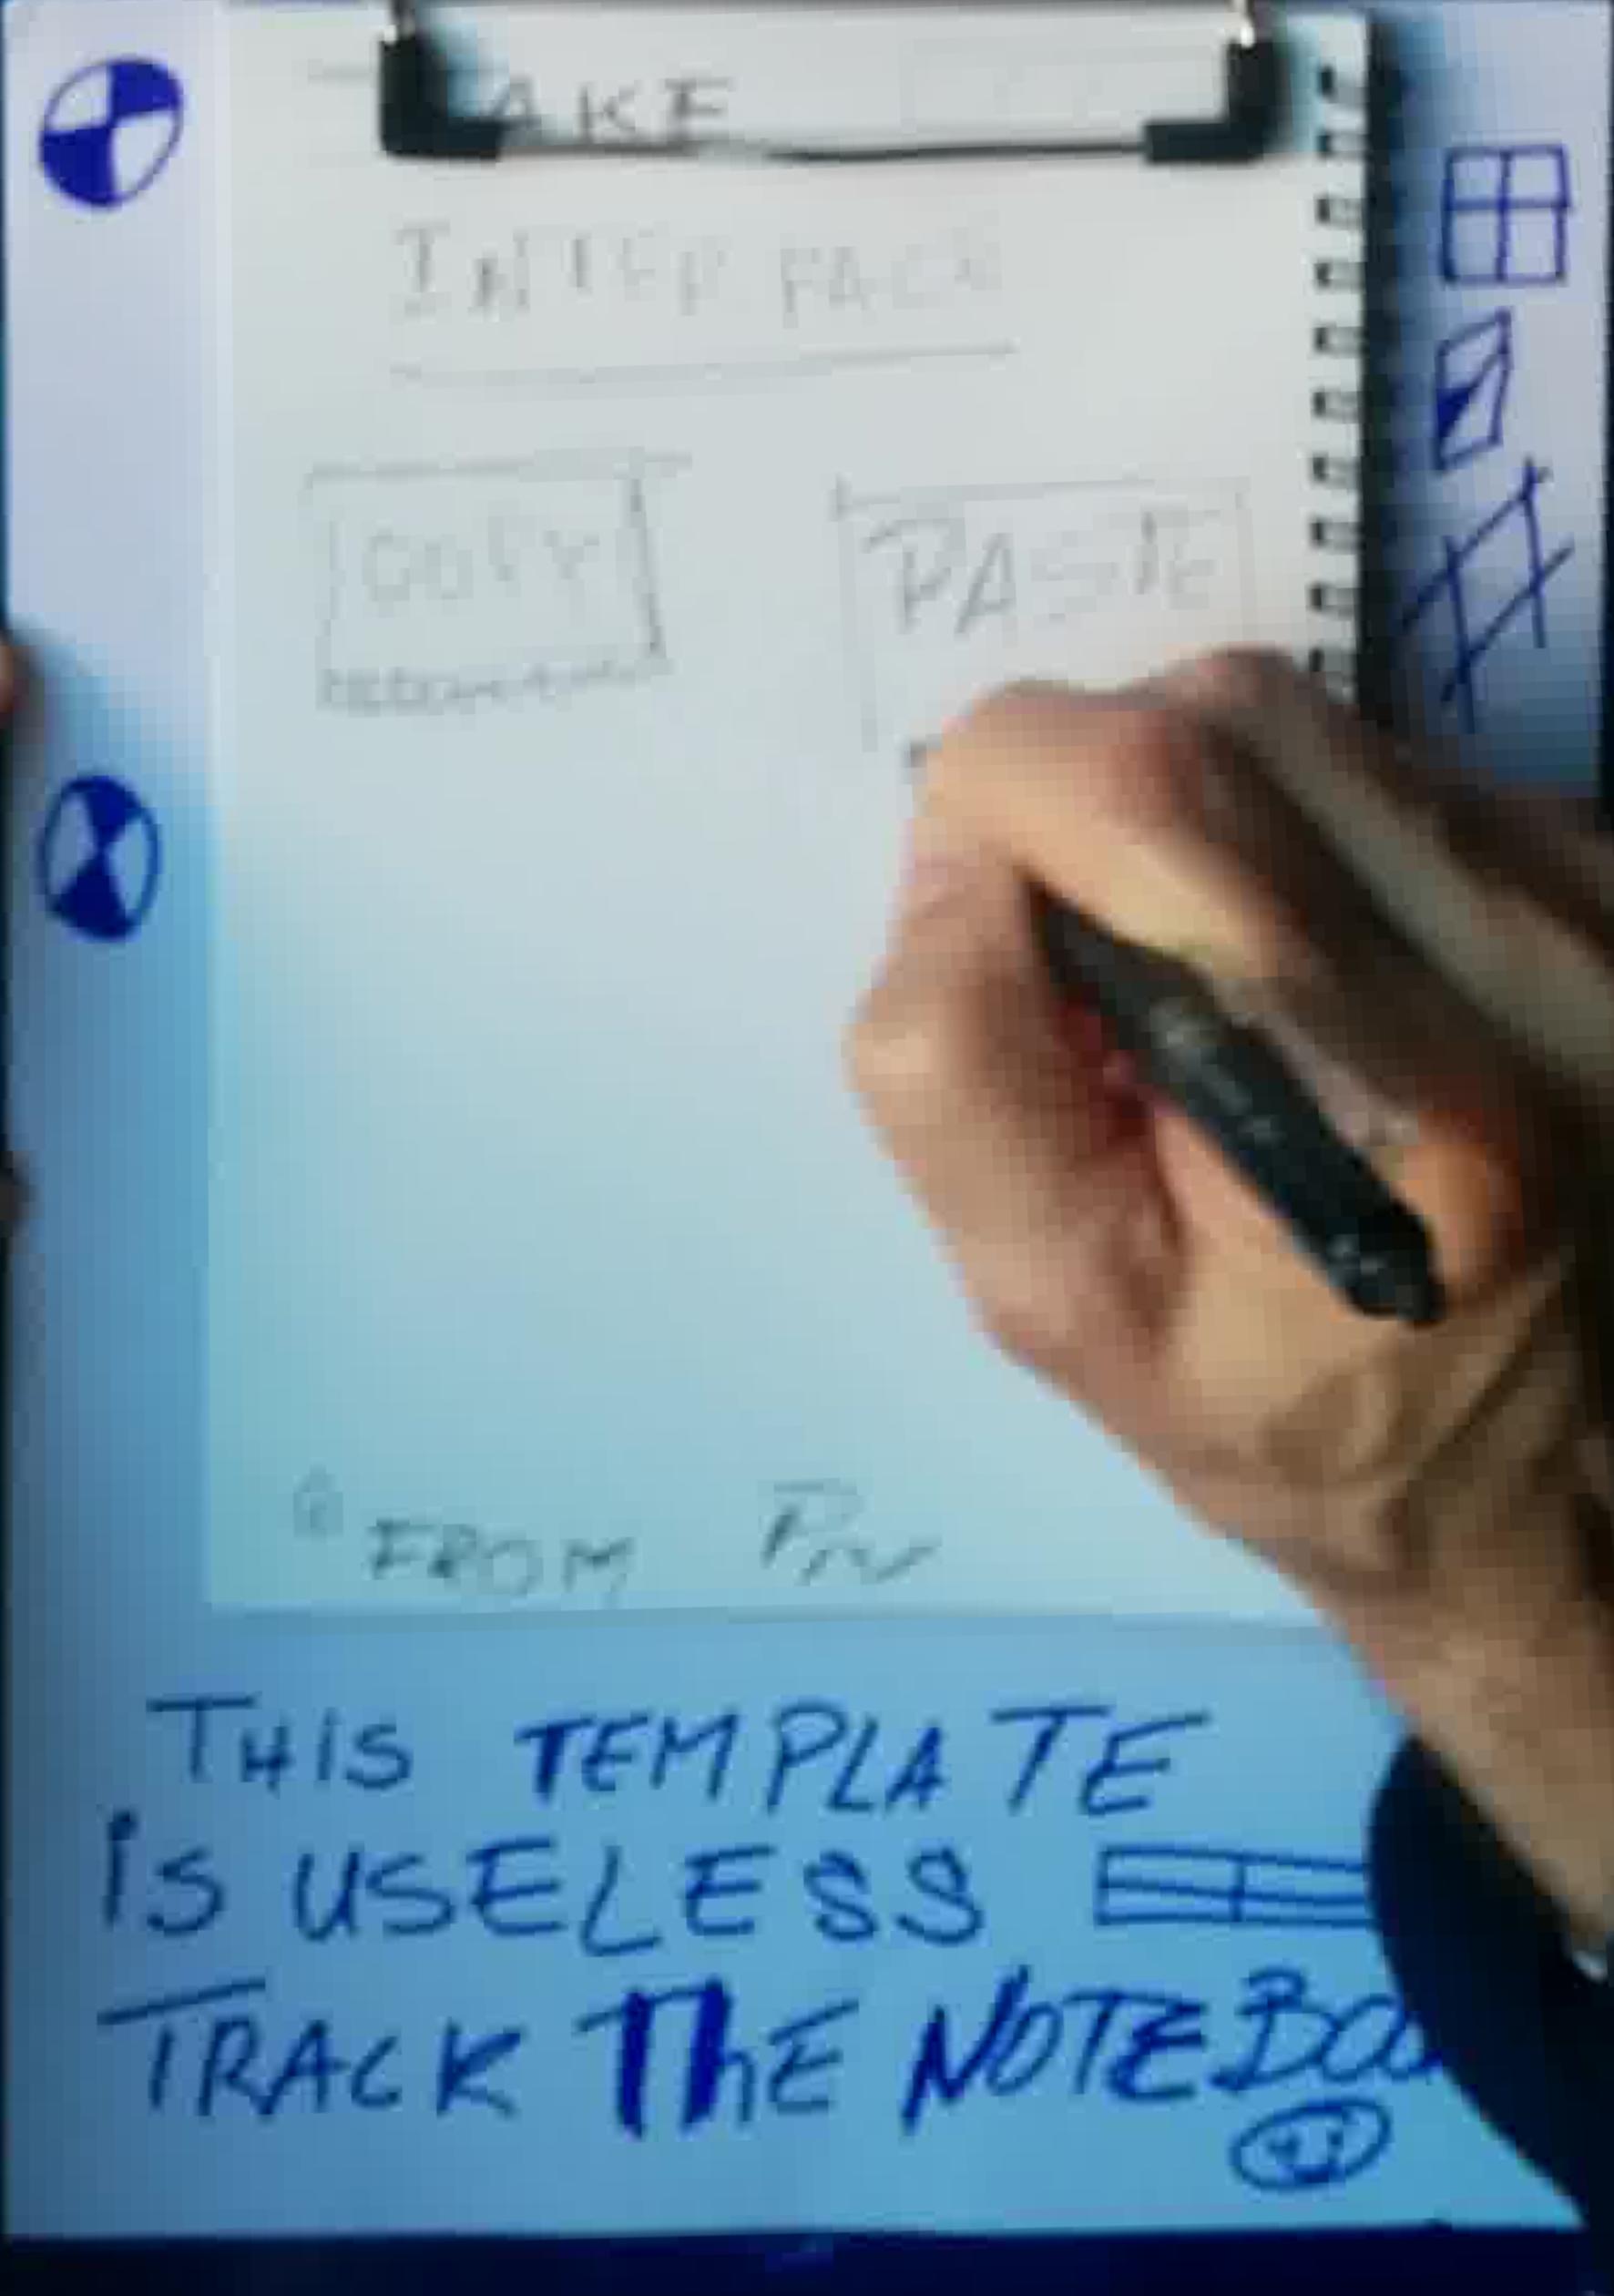 AKE
INTERFACE
COPY PASTE
FROM
THIS TEMPLATE
is USELESS
TRACK ThE NOTEBOO